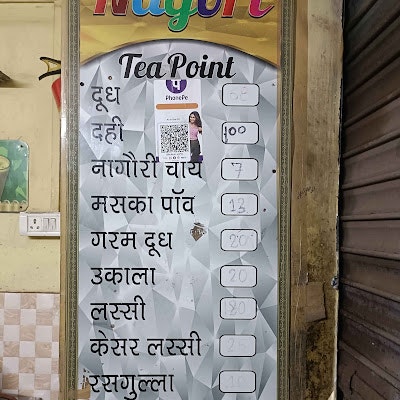 Nagori
Tea Point
PhonePe
दूध
दही 100
नागौरी चाय 7
मसका पॉव 13
गरम दूध 20
उकाला 20
लस्सी
केसर लस्सी
रसगुल्ला